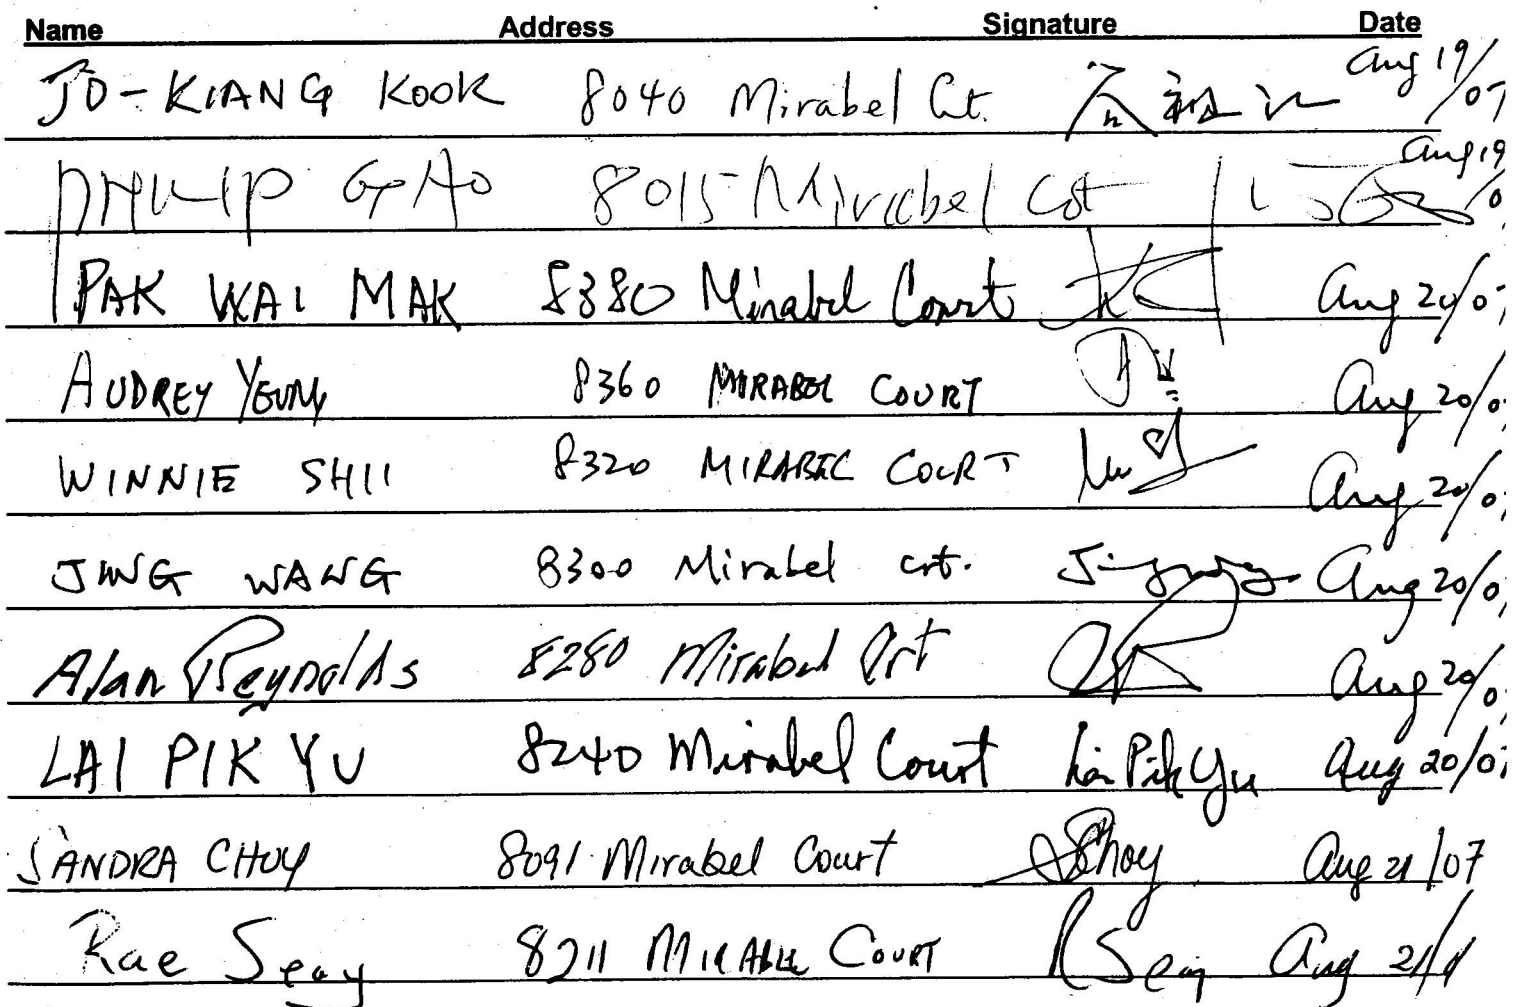 Name Address Signature Date
JO-KIANG KOOK 8040 Mirabel Crt. Aug 19/07
PHILIP GAO 8015 Mirabel Crt Aug 19
PAK WAI MAK 8380 Mirabel Court Aug 20/07
AUDREY YEUNG 8360 MIRABEL COURT Aug 20/0
WINNIE SHII 8320 MIRABEL COURT Aug 20/0
JING WANG 8300 Mirabel crt. Aug 20/0
Alan Reynolds 8280 Mirabel Crt Aug 20/0
LAI PIK YU 8240 Mirabel Court Lai Pik Yu Aug 20/07
SANDRA CHOY 8091 Mirabel Court SChoy Aug 21/07
Rae Seay 8211 MIRABLE COURT RSeay Aug 21/